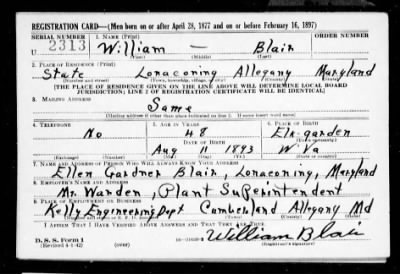 REGISTRATION CARD—(Men born on or after April 28, 1877 and on or before February 16, 1897)
SERIAL NUMBER 1. NAME (Print) ORDER NUMBER
U 2313 William — Blair
(First) (Middle) (Last)
2. PLACE OF RESIDENCE (Print)
State Lonaconing Allegany Maryland
(Number and street) (Town, township, village, or city) (County) (State)
[THE PLACE OF RESIDENCE GIVEN ON THE LINE ABOVE WILL DETERMINE LOCAL BOARD
JURISDICTION; LINE 2 OF REGISTRATION CERTIFICATE WILL BE IDENTICAL]
3. MAILING ADDRESS
Same
[Mailing address if other than place indicated on line 2. If same insert word same]
4. TELEPHONE 5. AGE IN YEARS 6. PLACE OF BIRTH
No 48 Elk-garden
DATE OF BIRTH (Town or county)
Aug 11 1893 W Va
(Exchange) (Number) (Mo.) (Day) (Yr.) (State or country)
7. NAME AND ADDRESS OF PERSON WHO WILL ALWAYS KNOW YOUR ADDRESS
Ellen Gardner Blair, Lonaconing, Maryland
8. EMPLOYER'S NAME AND ADDRESS
Mr. Warden, Plant Superintendent
9. PLACE OF EMPLOYMENT OR BUSINESS
Kelly Engineering Dept Cumberland Allegany Md
(Number and street or R. F. D. number) (Town) (County) (State)
I AFFIRM THAT I HAVE VERIFIED ABOVE ANSWERS AND THAT THEY ARE TRUE.
D. S. S. Form 1 William Blair
(Revised 4-1-42) (over) (Registrant's signature)